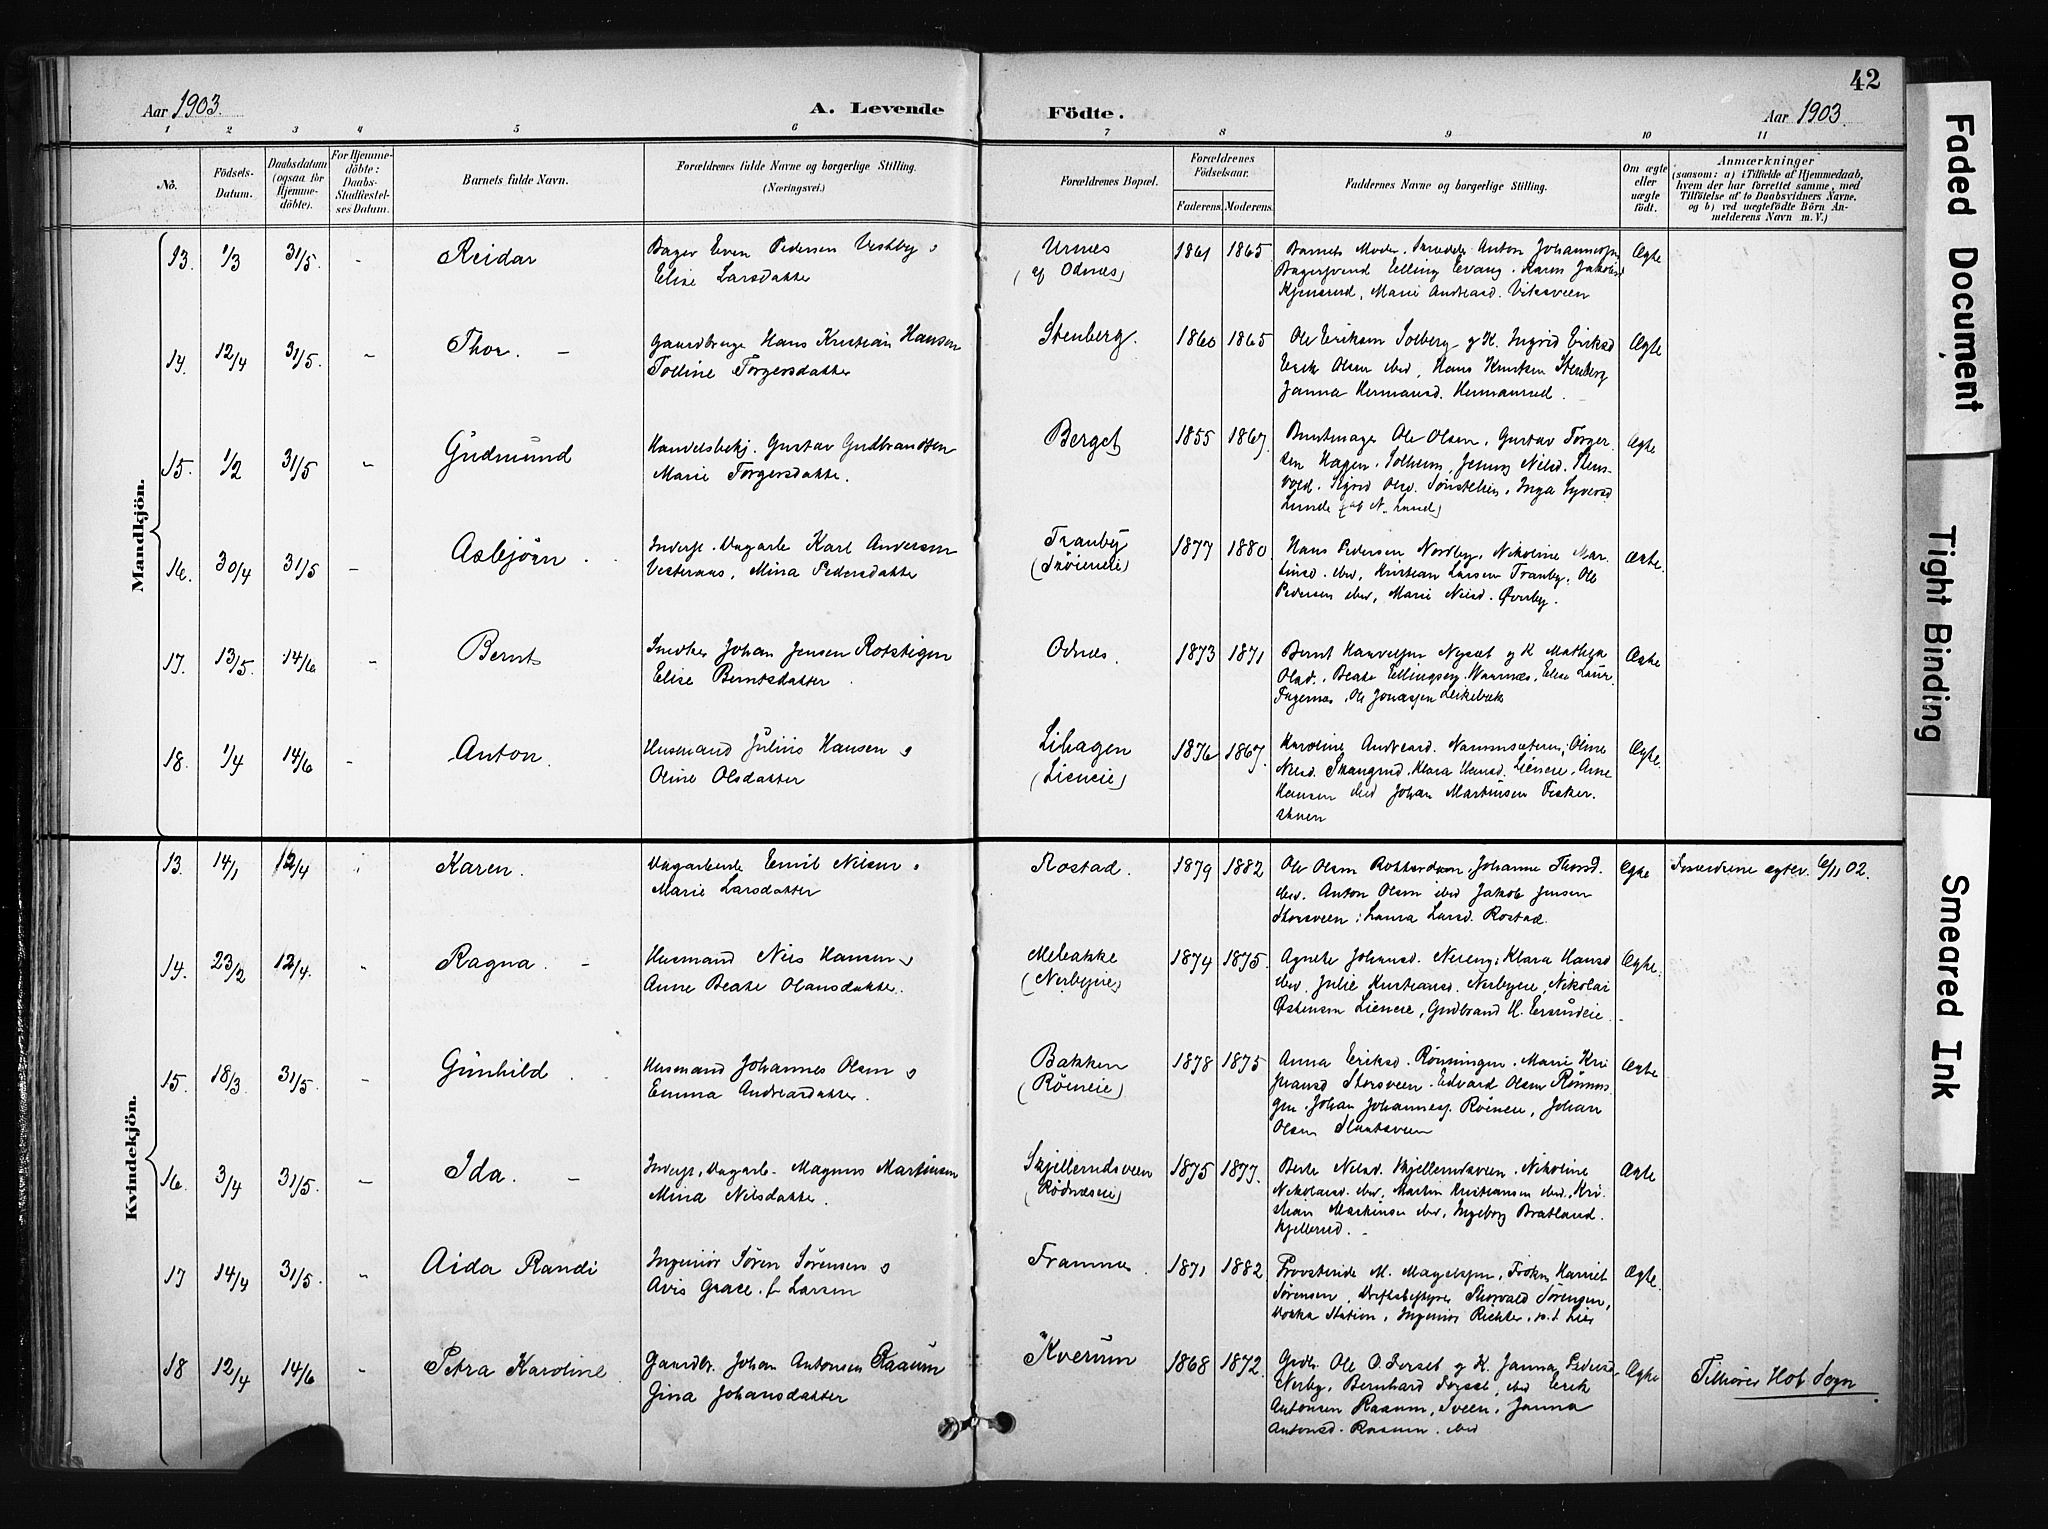 42
Aar 1903.
A. Levende Födte.
Aar 1903.
1 2 3 4 5 6 7 8 9 10 11
No.
Födsels-
Datum.
Daabsdatum
(ogsaa for
Hjemme-
döbte).
For Hjemme-
döbte:
Daabs-
Stadfæstel-
ses Datum.
Barnets fulde Navn.
Forældrenes fulde Navne og borgerlige Stilling.
(Næringsvei.)
Forældrenes Bopæl.
Forældrenes
Födselsaar.
Faderens. Moderens.
Faddernes Navne og borgerlige Stilling.
Om ægte
eller
uægte
födt.
Anmærkninger
(saasom: a) i Tilfælde af Hjemmedaab,
hvem der har forrettet samme, med
Tilföielse af to Daabsvidners Navne.
og b) ved uægtefödte Börn An-
melderens Navn m. V.)
Mandkjön.
13. 1/3 31/5. - Reidar
Bager Even Pedersen Vestby o
Elise Larsdatter
Urnes
(af Odnæs)
1861 1865
Barnets Moder. Anton
Elling Evang. Karen
Marie Andreasd. Viksveen
Ægte
14. 12/4 31/5. - Thor. -
Gaardbruger Hans Kristian Hansen
Tolline Torgersdatter
Stenberg.
1860 1865
Ole Eriksen Solberg og K. Ingrid Eriksd
Erik Olsen ibid, Hans Knutsen Stenberg
Janna Hermansd. Hermanrud.
Ægte
15. 1/2 31/5 - Gudmund
Handelsbetj. Gustav Gudbrandsen
Marie Torgersdatter.
Berget
1855 1867.
Buntmager Ole Olsen, Gustav Torger-
sen Hagen. Solheim, Jenny Nilsd. Stens-
vold. Sigrid Olsd. Inga Syversd
Lunde (af N. Land)
Ægte
16. 30/4 31/5 - Asbjörn
Inderst. Dagarb. Karl Andersen
Vesteraas, Mina Pedersdatter
Tranby
1877 1880.
Hans Pedersen Nordby, Nikoline Mar-
tinsd. ibid, Kristian Larsen Tranby, Ole
Pedersen ibid, Marie Nilsd. Øverby.
Ægte.
17. 13/5. 14/6 - Bernt
Snedker Johan Jensen Rotstigen
Elise Berntsdatter.
Odnæs.
1873 1871
Bernt Nysæt og K Mathea
Olsd. Beate
Ole
Ægte
18. 1/4 14/6 - Anton.
Husmand Julius Hansen o
Oline Olsdatter
Lihagen
(Lieneie)
1876 1867.
Karoline Andreasd. Oline
Nilsd. Klara Hansd. Lieneie, Arne
Hansen ibid Johan Martinsen Fisker-
stuen
Ægte.
Kvindekjön.
13. 14/1 12/4 Karen.
Dagarbeide Emil Nilsen o
Marie Larsdatter
Rostad.
1879 1882
Ole Olsen Johanne Thorsd.
ibid. Anton Olsen ibid Jakob Jensen
Storsveen, Laura Larsd. Rostad.
Ægte
Forældrene egtev. 6/11 02.
14. 23/2 12/4. - Ragna. -
Husmand Nils Hansen o
Anne Beate Olausdatter.
Melbakke
(Nerbyeie)
1874 1875.
Agnete Johansd. Nereng, Klara Hansd
ibid. Julie Kristiansd. Nerbyeie, Nikolai
Østensen Lieneie, Gudbrand H.
Ægte.
15. 18/3. 31/5. - Gunhild
Husmand Johannes Olsen o
Emma Andreasdatter.
Bakken
(Röineie)
1878 1875
Anna Eriksd. Rönningen, Marie Kri-
stiansd Storsveen. Edvard Olsen Rönnin-
gen. Johan Johannesen Röineie, Johan
Olsen
Ægte
16. 3/4 31/5. - Ida. -
Inderst, Dagarb. Magnus Martinsen
Mina Nilsdatter.
Skjellerudsveen
(Rödnæseie)
1875 1877.
Berte Nilsd. Skjellerudsveen, Nikoline
Nikolaisd. ibid, Martin Kristiansen ibid, Kri-
stian Martinsen ibid, Ingeborg Bratland.
Skjellerud.
Ægte
17 14/4 31/5. - Aida Randi
Ingeniör Sören Sörensen o
Avis Grace. f. Larsen
Framnæs.
1871 1882
Provstinde M. Magelssen, Frøken Harriet
Sörensen, Driftsbestyrer Thorvald Sörensen,
Dokka Station, Ingeniör Richter, p. t. Lier
Ægte.
18 12/4 14/6 - Petra Karoline.
Gaardbr. Johan Antonsen Raaum
Gina Johansdatter
Kverum
1868 1872.
Grdbr. Ole O. Sorset og K. Janna Pedersd.
Nerby, Bernhard ibid Erik
Antonsen Raaum, Sveen, Janna
Antonsd. Raaum. ibid
Ægte
Tilhörer Hof Sogn
Faded Document
Tight Binding
Smeared Ink